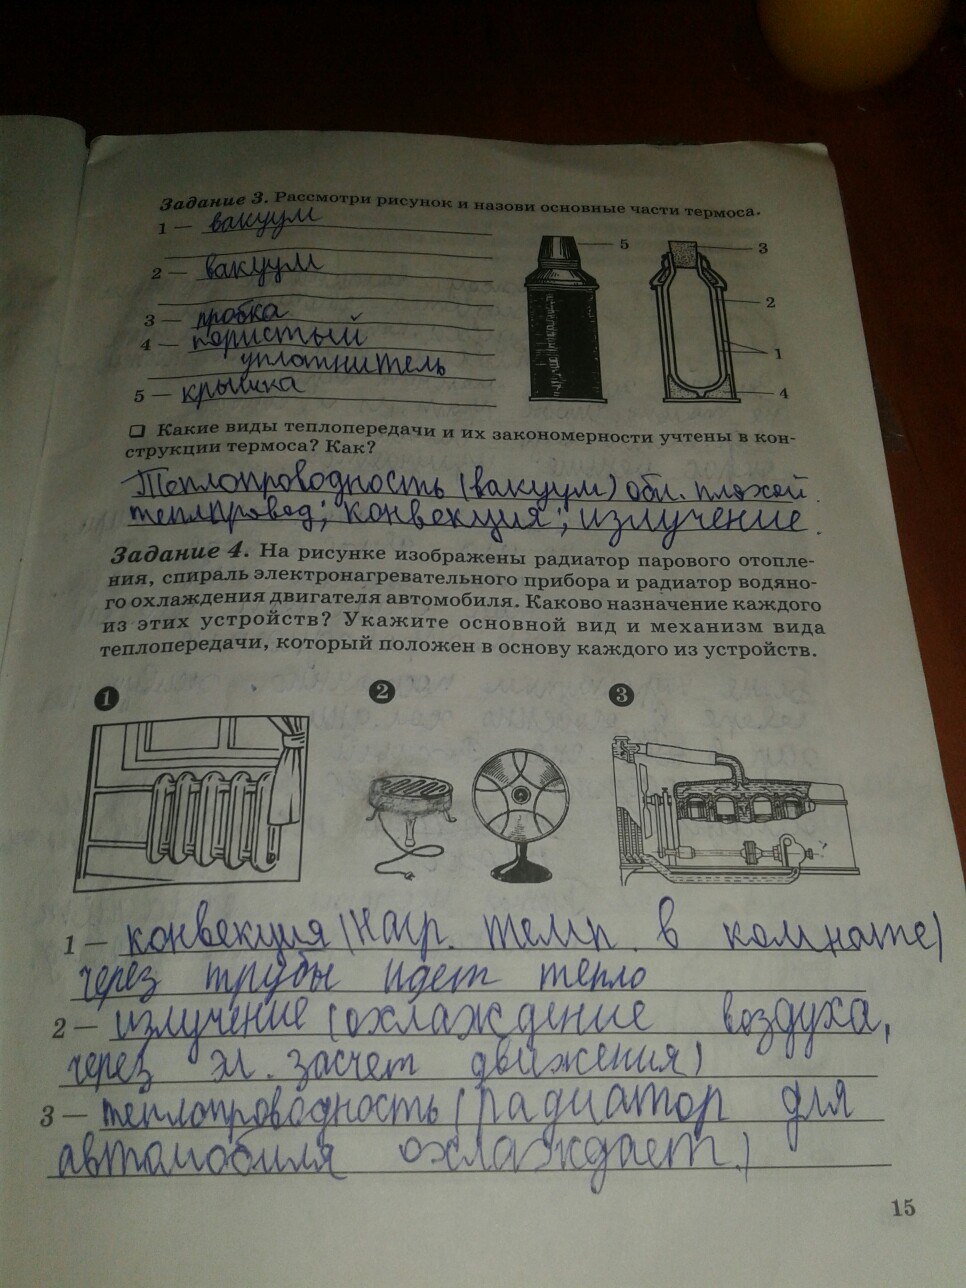 Задание 3. Рассмотри рисунок и назови основные части термоса.
1 — вакуум
2 — вакуум
3 — пробка
4 — пористый
уплотнитель
5 — крышка
5
3
2
1
4
❑ Какие виды теплопередачи и их закономерности учтены в кон-
струкции термоса? Как?
Теплопроводность (вакуум) обл. плохой
теплпровод; конвекция; излучение.
Задание 4. На рисунке изображены радиатор парового отопле-
ния, спираль электронагревательного прибора и радиатор водяно-
го охлаждения двигателя автомобиля. Каково назначение каждого
из этих устройств? Укажите основной вид и механизм вида
теплопередачи, который положен в основу каждого из устройств.
1
2
3
1 — конвекция (нагр. темп. в комнате)
через трубы идет тепло
2 — излучение (охлаждение воздуха,
через эл. засчет движения)
3 — теплопроводность (радиатор для
автомобиля охлаждает.)
15